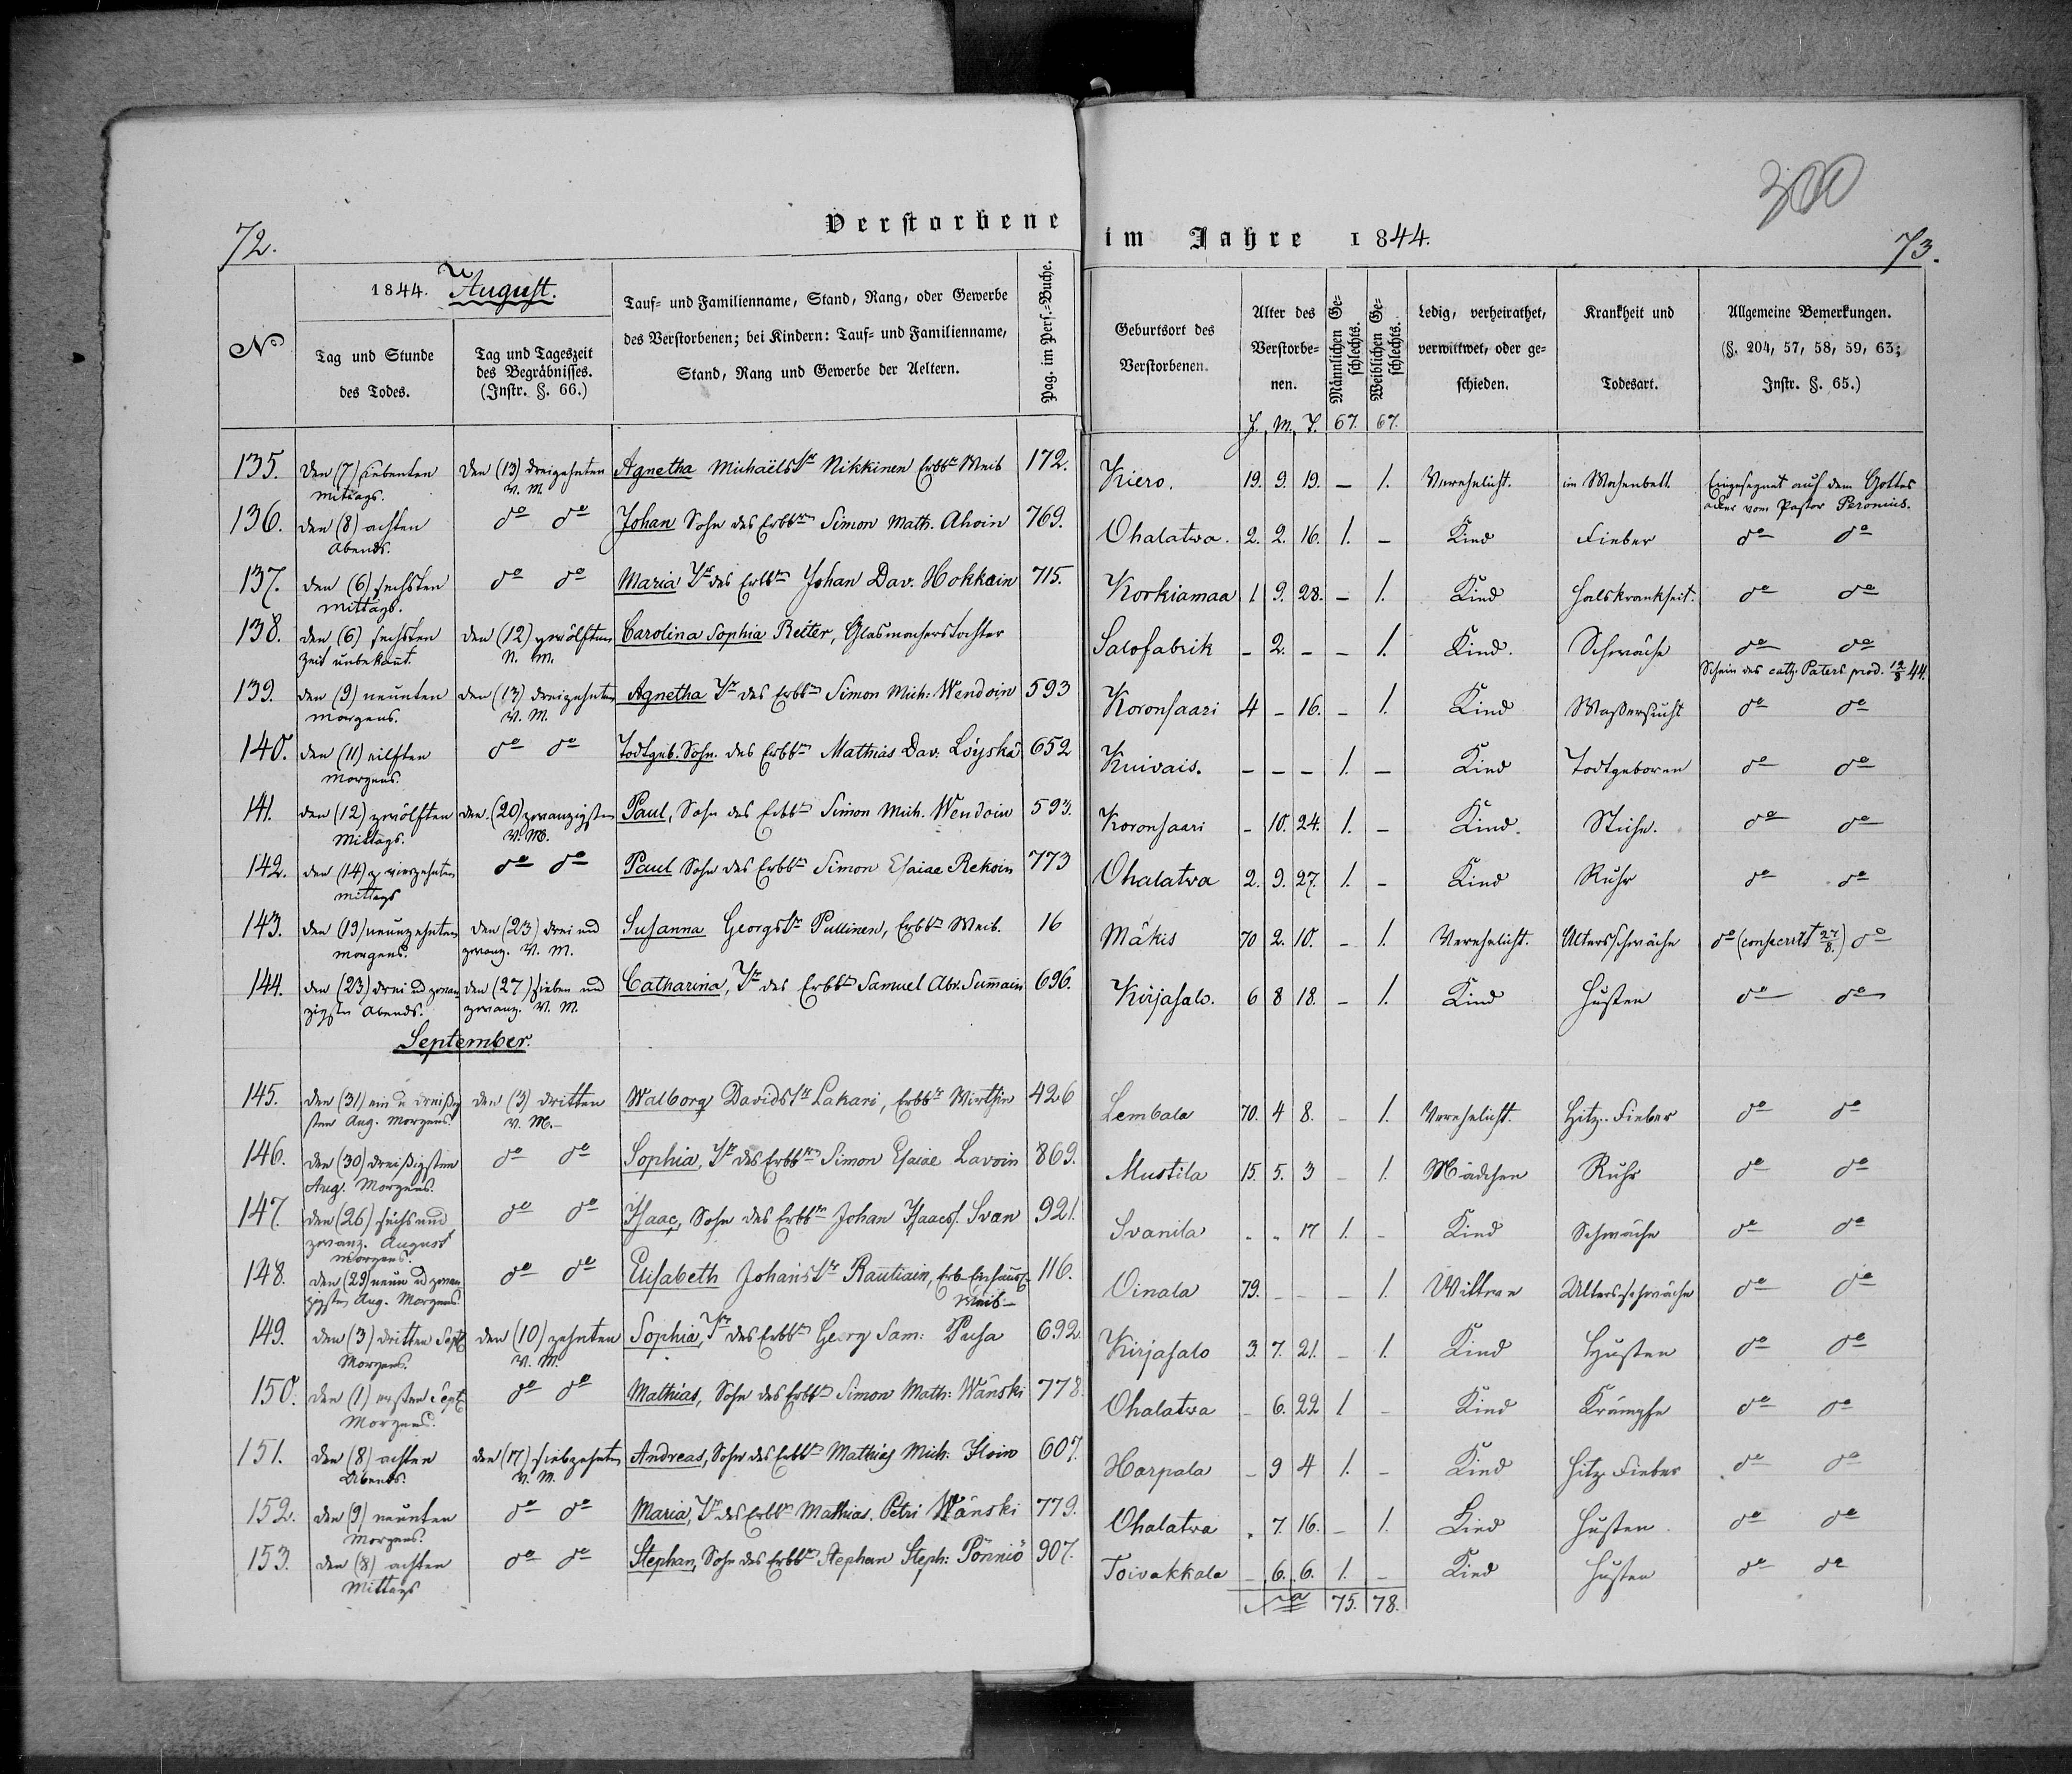 72.
Verstorbene
im Jahre 1844.
300
73.
№
1844. August.
Tag und Stunde des Todes.
Tag und Tageszeit des Begräbnisses. (Instr. §. 66.)
Tauf= und Familienname, Stand, Rang, oder Gewerbe des Verstorbenen; bei Kindern: Tauf= und Familienname, Stand, Rang und Gewerbe der Aeltern.
Pag. im Pers.=Buche.
Geburtsort des Verstorbenen.
Alter des Verstorbe= nen.
J. M. T.
Männlichen Ge= schlechts.
67.
Weiblichen Ge= schlechts.
67.
Ledig, verheirathet, verwittwet, oder ge= schieden.
Krankheit und Todesart.
Allgemeine Bemerkungen. (§. 204, 57, 58, 59, 63; Instr. §. 65.)
135. den (7) siebenten Mittags. den (13) dreizehnten V. M. Agnetha Michaëls Tr Nikkinen Erbbr Weib 172. Kiero. 19. 9. 19. — 1. Verehelicht. im Wochenbett. Eingesegnet auf dem Gottes acker vom Pastor Peronius.
136. den (8) achten Abends. do do Johan Sohn des Erbbrn Simon Math. Ahoin 769. Ohalatwa. 2. 2. 16. 1. — Kind Fieber do do
137. den (6) sechsten Mittags. do do Maria Tr des Erbbrn Johan Dav. Hokkain 715. Korkiamaa 1 9. 28. — 1. Kind Halskrankheit. do do
138. den (6) sechsten Zeit unbekant. den (12) zwölften N. M. Carolina Sophia Reiter, Glasmacherstochter Salofabrik – 2. – – 1. Kind. Schwäche do do
Schein des cath. Paters prod. 12/8 44.
139. den (9) neunten Morgens. den (13) dreizehnten V. M. Agnetha Tr des Erbbrn Simon Mich: Wendoin 593 Koronsaari 4 – 16. – 1. Kind Waßersucht do do
140. den (11) eilften Morgens. do do Todtgeb. Sohn des Erbbrn Mathias Dav: Löyskä 652 Kuivais. – – – 1. – Kind Todtgeboren do do
141. den (12) zwölften Mittags. den (20) zwanzigsten V. M. Paul, Sohn des Erbbrn Simon Mich. Wendoin 593. Koronsaari – 10. 24. 1. – Kind. Stiche. do do
142. den (14) vierzehnten Mittags do do Paul Sohn des Erbbrn Simon Esaiae Rekoin 773 Ohalatwa 2. 9. 27. 1. – Kind Ruhr do do
143. den (19) neunzehnten Morgens. den (23) drei und zwanz. V. M. Susanna Georgs Tr Pullinen, Erbbrn Weib. 16 Mäkis 70 2. 10. – 1. Verehelicht. Altersschwäche do (consecrirt 27/8.) do
144. den (23) drei ud zwan zigsten Abends. den (27) sieben und zwanz. V. M. Catharina, Tr des Erbbrn Samuel Abr. Summain 696. Kirjasalo. 6 8 18. – 1. Kind Husten do do
September.
145. den (31) ein u dreißig sten Aug. Morgens. den (3) dritten V. M. Walborg Davids Tr Lakari, Erbbr Wirthin 426 Lembala 70. 4 8. – 1. Verehelicht. Hitz. Fieber do do
146. den (30) dreißigsten Aug. Morgens. do do Sophia, Tr des Erbbrn Simon Esaiae Lavoin 869. Mustila 15. 5. 3 – 1. Mädchen Ruhr do do
147. den (26) sechs und zwanz. August Morgens. do do Isaac, Sohn des Erbbrn Johan Isaacs. Svan 921. Svanila – – 17 1. – Kind Schwäche do do
148. den (29) neun ud zwan zigsten Aug. Morgens. do do Elisabeth Johans Tr Rautiain, Erb Weib 116. Oinala 79. – – – 1. Wittwe Altersschwäche do do
149. den (3) dritten Sept Morgens. den (10) zehnten V. M. Sophia, Tr des Erbbrn Georg Sam: Pusa 692 Kirjasalo 3. 7. 21. – 1. Kind Husten do do
150. den (1) ersten Sept. Morgens. do do Mathias, Sohn des Erbbrn Simon Math: Wänski 778. Ohalatwa – 6. 22 1 – Kind Krämpfe do do
151. den (8) achten Abends. den (17) siebzehnten V. M. Andreas, Sohn des Erbbrn Mathias Mich: Iloin 607. Harpala – 9 4 1. – Kind Hitz. Fieber do do
152. den (9) neunten Morgens. do do Maria, Tr des Erbbrn Mathias. Petri Wänski 779. Ohalatwa – 7. 16. – 1. Kind Husten do do
153. den (8) achten Mittags do do Stephan, Sohn des Erbbrn Stephan Steph: Pönniö 907. Toivakkala – 6. 6. 1. – Kind Husten do do
75. 78.